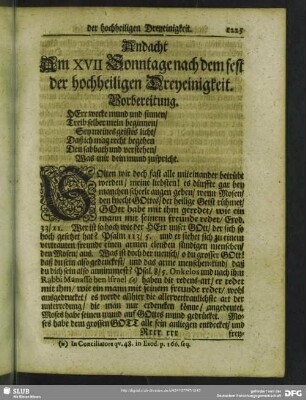 der hochheiligen Dreyeinigkeit.
Andacht
Am XVII Sonntage nach dem fest
der hochheiligen Dreyeinigkeit.
Vorbereitung.
HErr wecke mund und sinnen/
Treib selber mein beginnen/
Sey meines geistes licht/
Daß ich mag recht begehen
Den sabbath und verstehen/
Was mir dein mund zuspricht.
Solten wir doch fast alle miteinander betrübt
werden/ meine liebsten! es dürffte gar bey
manchen schele augen geben/ wenn Mosen/
den knecht GOttes/ der heilige Geist rühmet/
GOtt habe mit ihm geredet/ wie ein
mann mit seinem freunde redet/ Exod.
33/ 11. Wer ist so hoch wie der HErr unser GOtt/ der sich so
hoch gesetzt hat? Psalm 113/ 5. und er sichet sich zu einem
vertrauten freunde einen armen elenden sündigen menschen/
den Mosen/ aus. Was ist doch der mensch/ o du grosser GOtt!
daß du sein also gedenckest/ und das arme menschen-kind/ daß
du dich sein also annimmest? Psal. 8/ 5. Onkelos und nach ihm
Rabbi Manasse ben Israel (a) haben die redens-art/ er redet
mit ihm/ wie ein mann mit seinem freunde redet/ wohl
ausgedrucket/ es werde allhier die allervertraulichste art der
unterredung/ die man nur erdencken könne/ angedeutet.
Moses habe seinen mund auf GOttes mund gedrücket. Mo-
ses habe dem grossen GOTT alle sein anliegen entdecket/ und
Rrrr rrr
frey-
(a) In Conciliatore qv. 48. in Exod. p. 166. seq.
SLUB